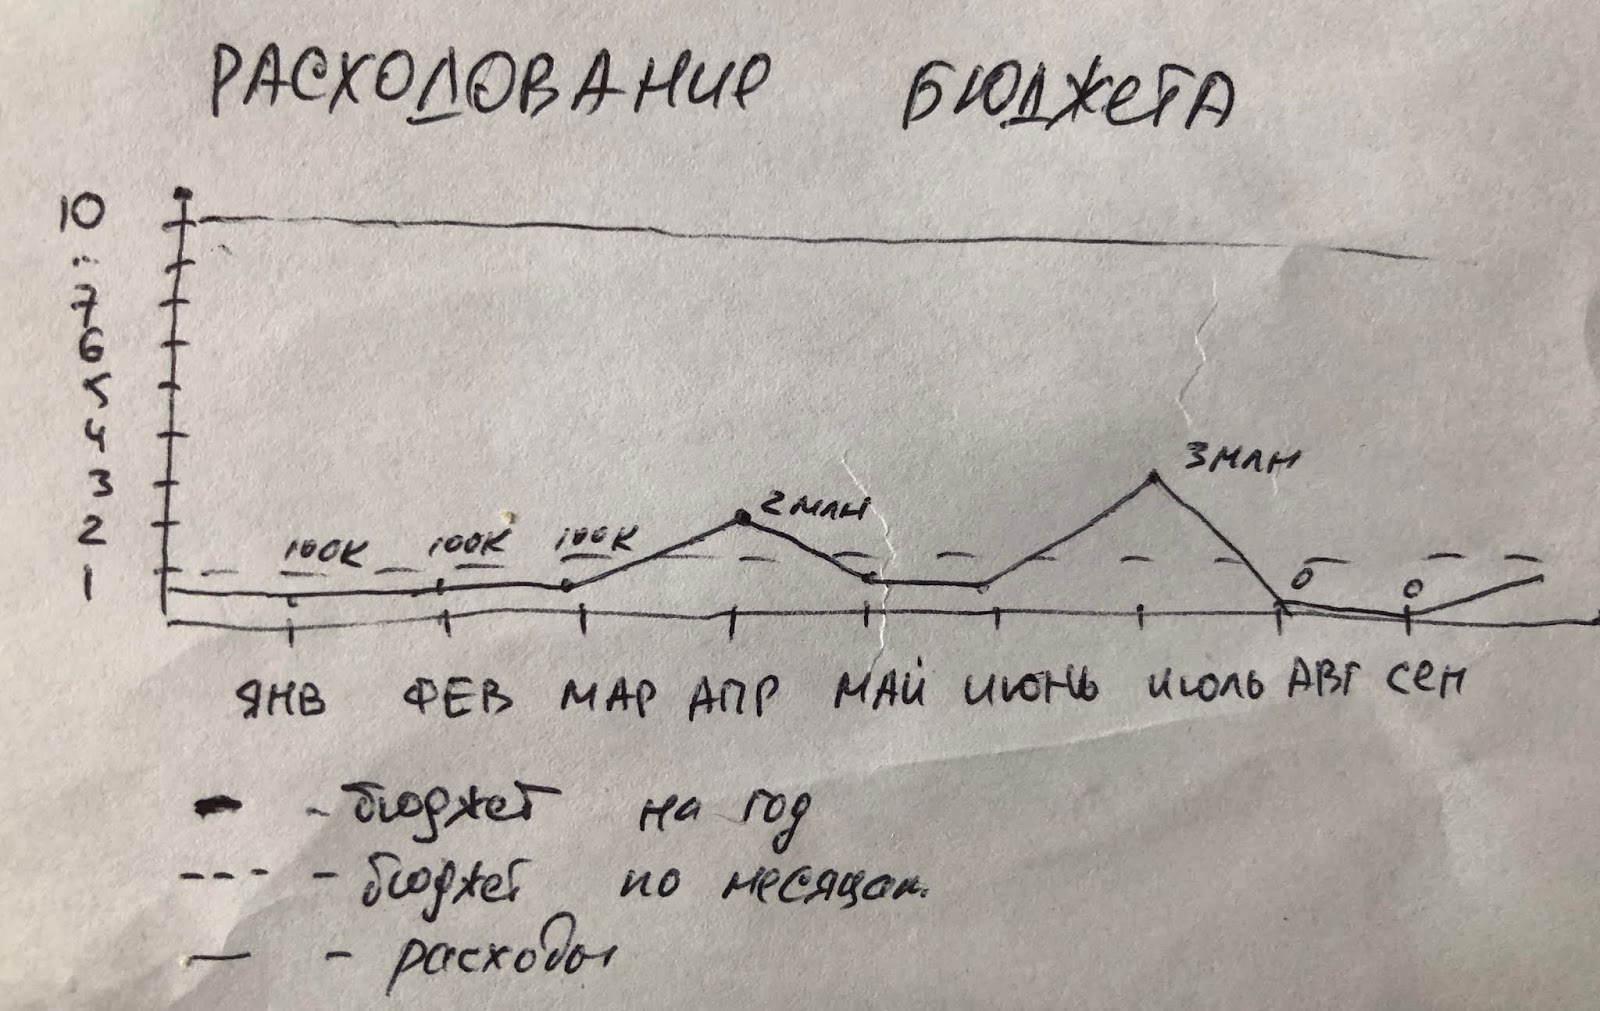 РАСХОДОВАНИЕ БЮДЖЕТА
10
..
7
6
5
4
3
2
1
3 МЛН
2 МЛН
100К 100К 100К
0 0
ЯНВ ФЕВ МАР АПР МАЙ ИЮНЬ ИЮЛЬ АВГ СЕН
- бюджет на год
--- - бюджет по месяцам.
— - расходы